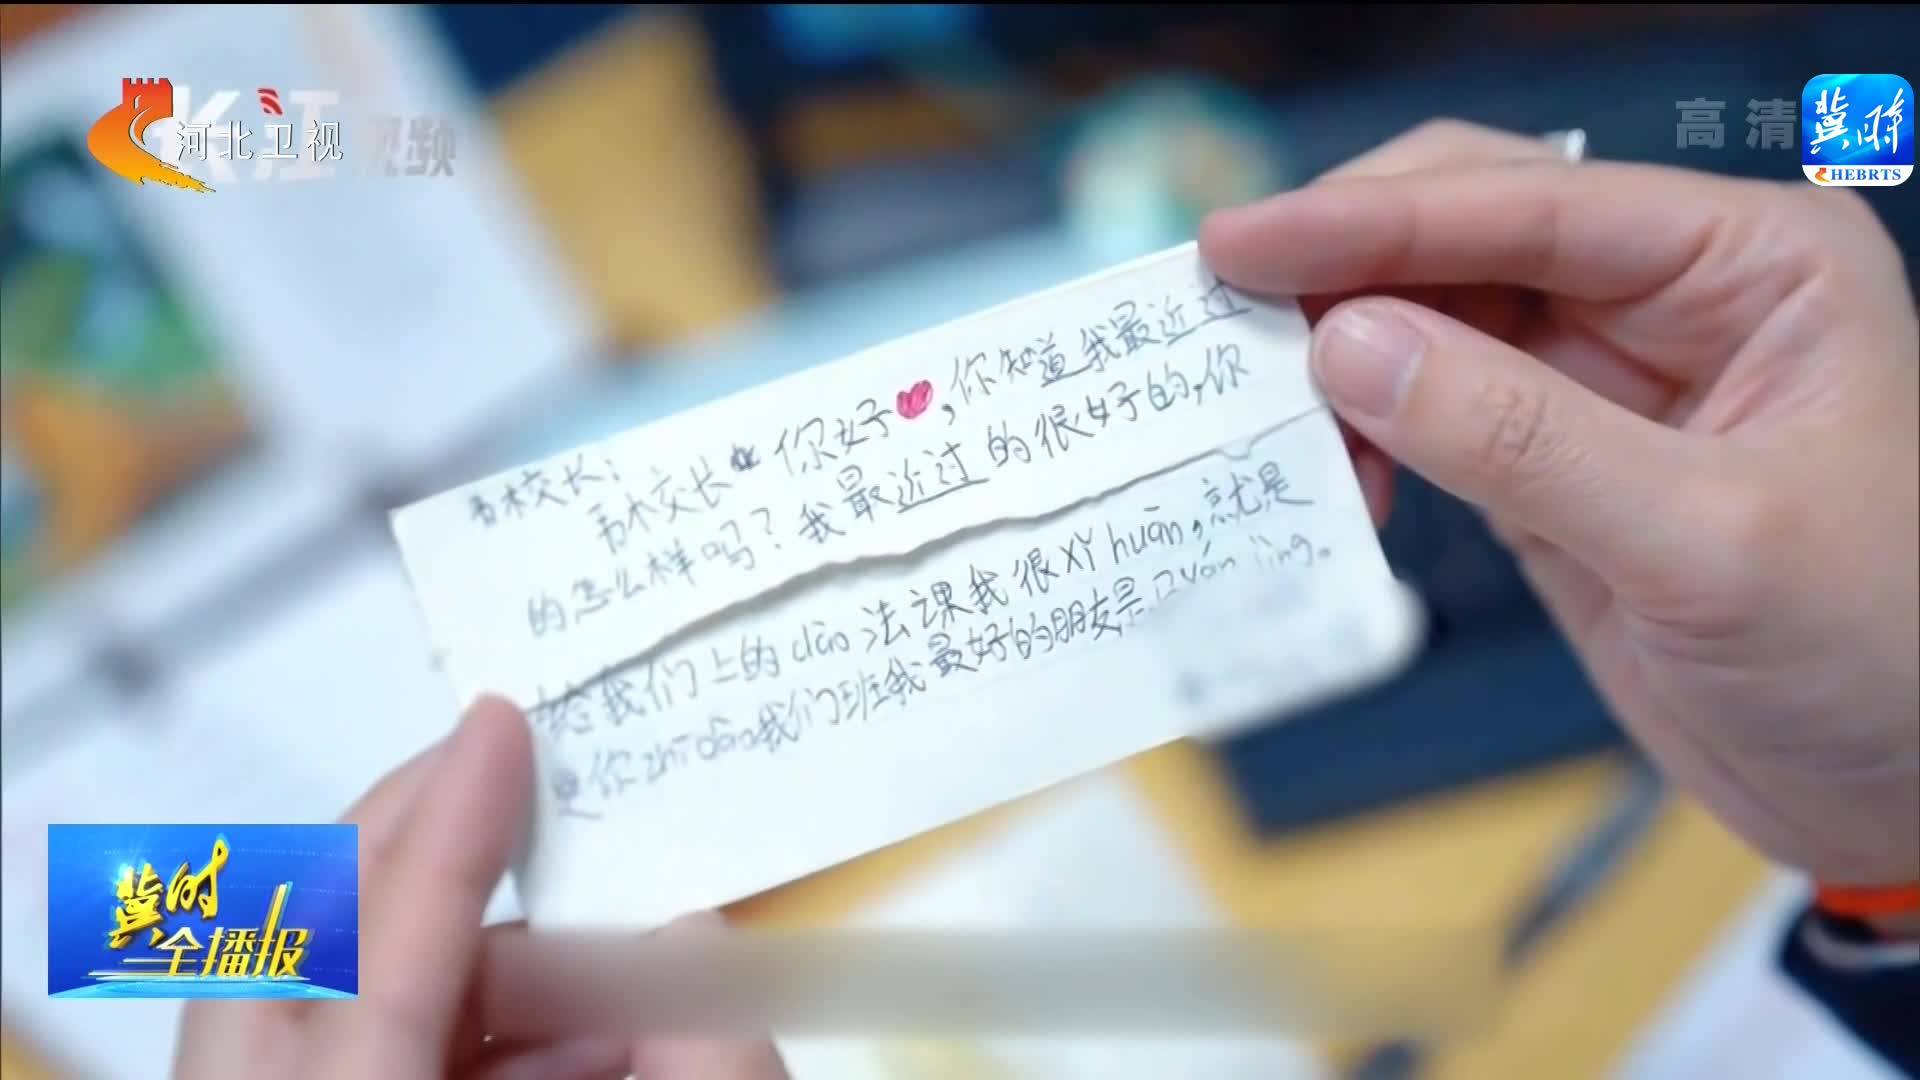 长江视频
河北卫视
高清
冀时
HEBRTS
校长:
校长 你好,你知道我最近过
的怎么样吗?我最近过的很好的,你
给我们上的dào法课我很xǐ huān,就是
是你zhī dào我们班我最好的朋友是
冀时
全播报